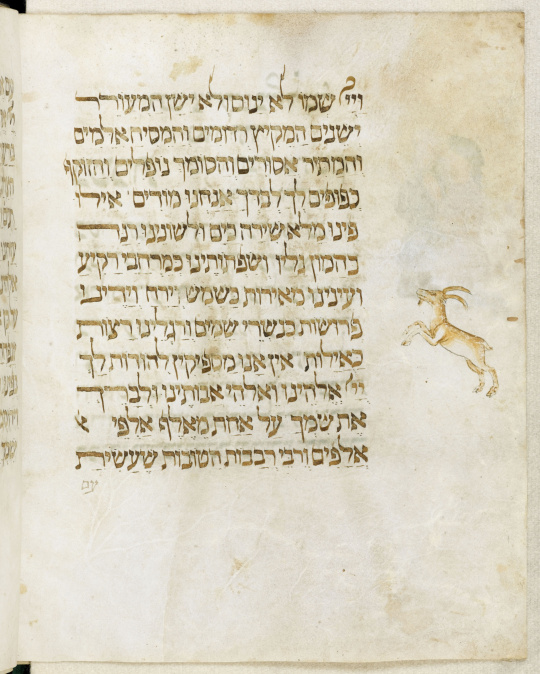 ויי' שמו לא ינום ולא ישן המעורר
ישנים המקיץ רדומים והמסיח אלמים
והמתיר אסורים והסומך נופלים והזוקף
כפופים לך לבדך אנחנו מודים אילו
פינו מלא שירה כים ולשוננו רנה
כהמון גליו ושפתותינו כמרחבי רקיע
ועינינו מאירות כשמש וירח וידינו
פרושות כנשרי שמים ורגלינו רצות
כאילות אין אנו מספיקין להודות לך
יי' אלהינו ואלהי אבותינו ולברך
את שמך על אחת מאלף אלפי א
אלפים ורבי רבבות הטובות שעשית
עם